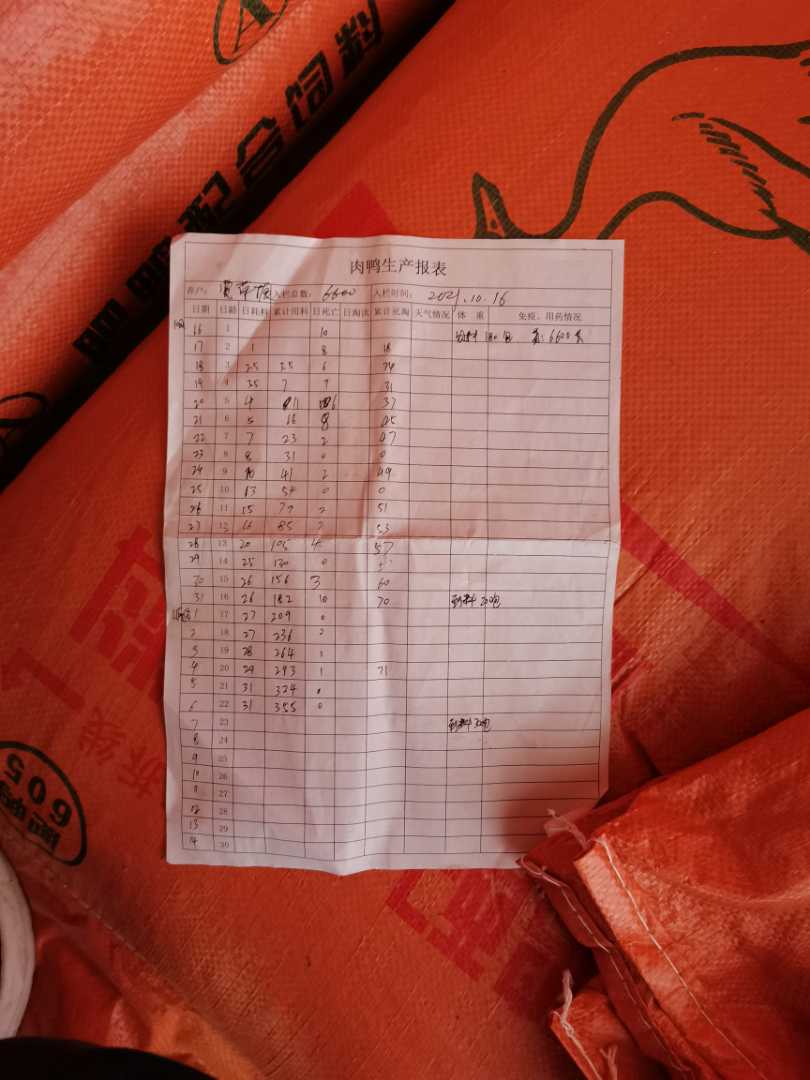 配合饲料
肉鸭生产报表
客户： 入栏总数： 6600 入栏时间： 2021.10.16
日期 日龄 日耗料 累计用料 日死亡 日淘汰 累计死淘 天气情况 体 重 免疫、用药情况
16 1 10 180包 6600
17 2 1 8 18
18 3 2.5 3.5 6 24
19 4 3.5 7 7 31
20 5 4 11 6 37
21 6 5 16 8 45
22 7 7 23 2 47
23 8 8 31 0 0
24 9 10 41 2 49
25 10 13 54 0 0
26 11 15 2 51
27 12 16 85 2 53
28 13 20 105 4 57
29 14 25 130 0
30 15 26 156 3 60
31 16 26 182 10 70
1 17 27 209 0
2 18 27 236 2
3 19 28 264 1
4 20 29 293 1 71
5 21 31 324 0
6 22 31 355 0
7 23
8 24
9 25
10 26
11 27
12 28
13 29
14 30
拆线
605